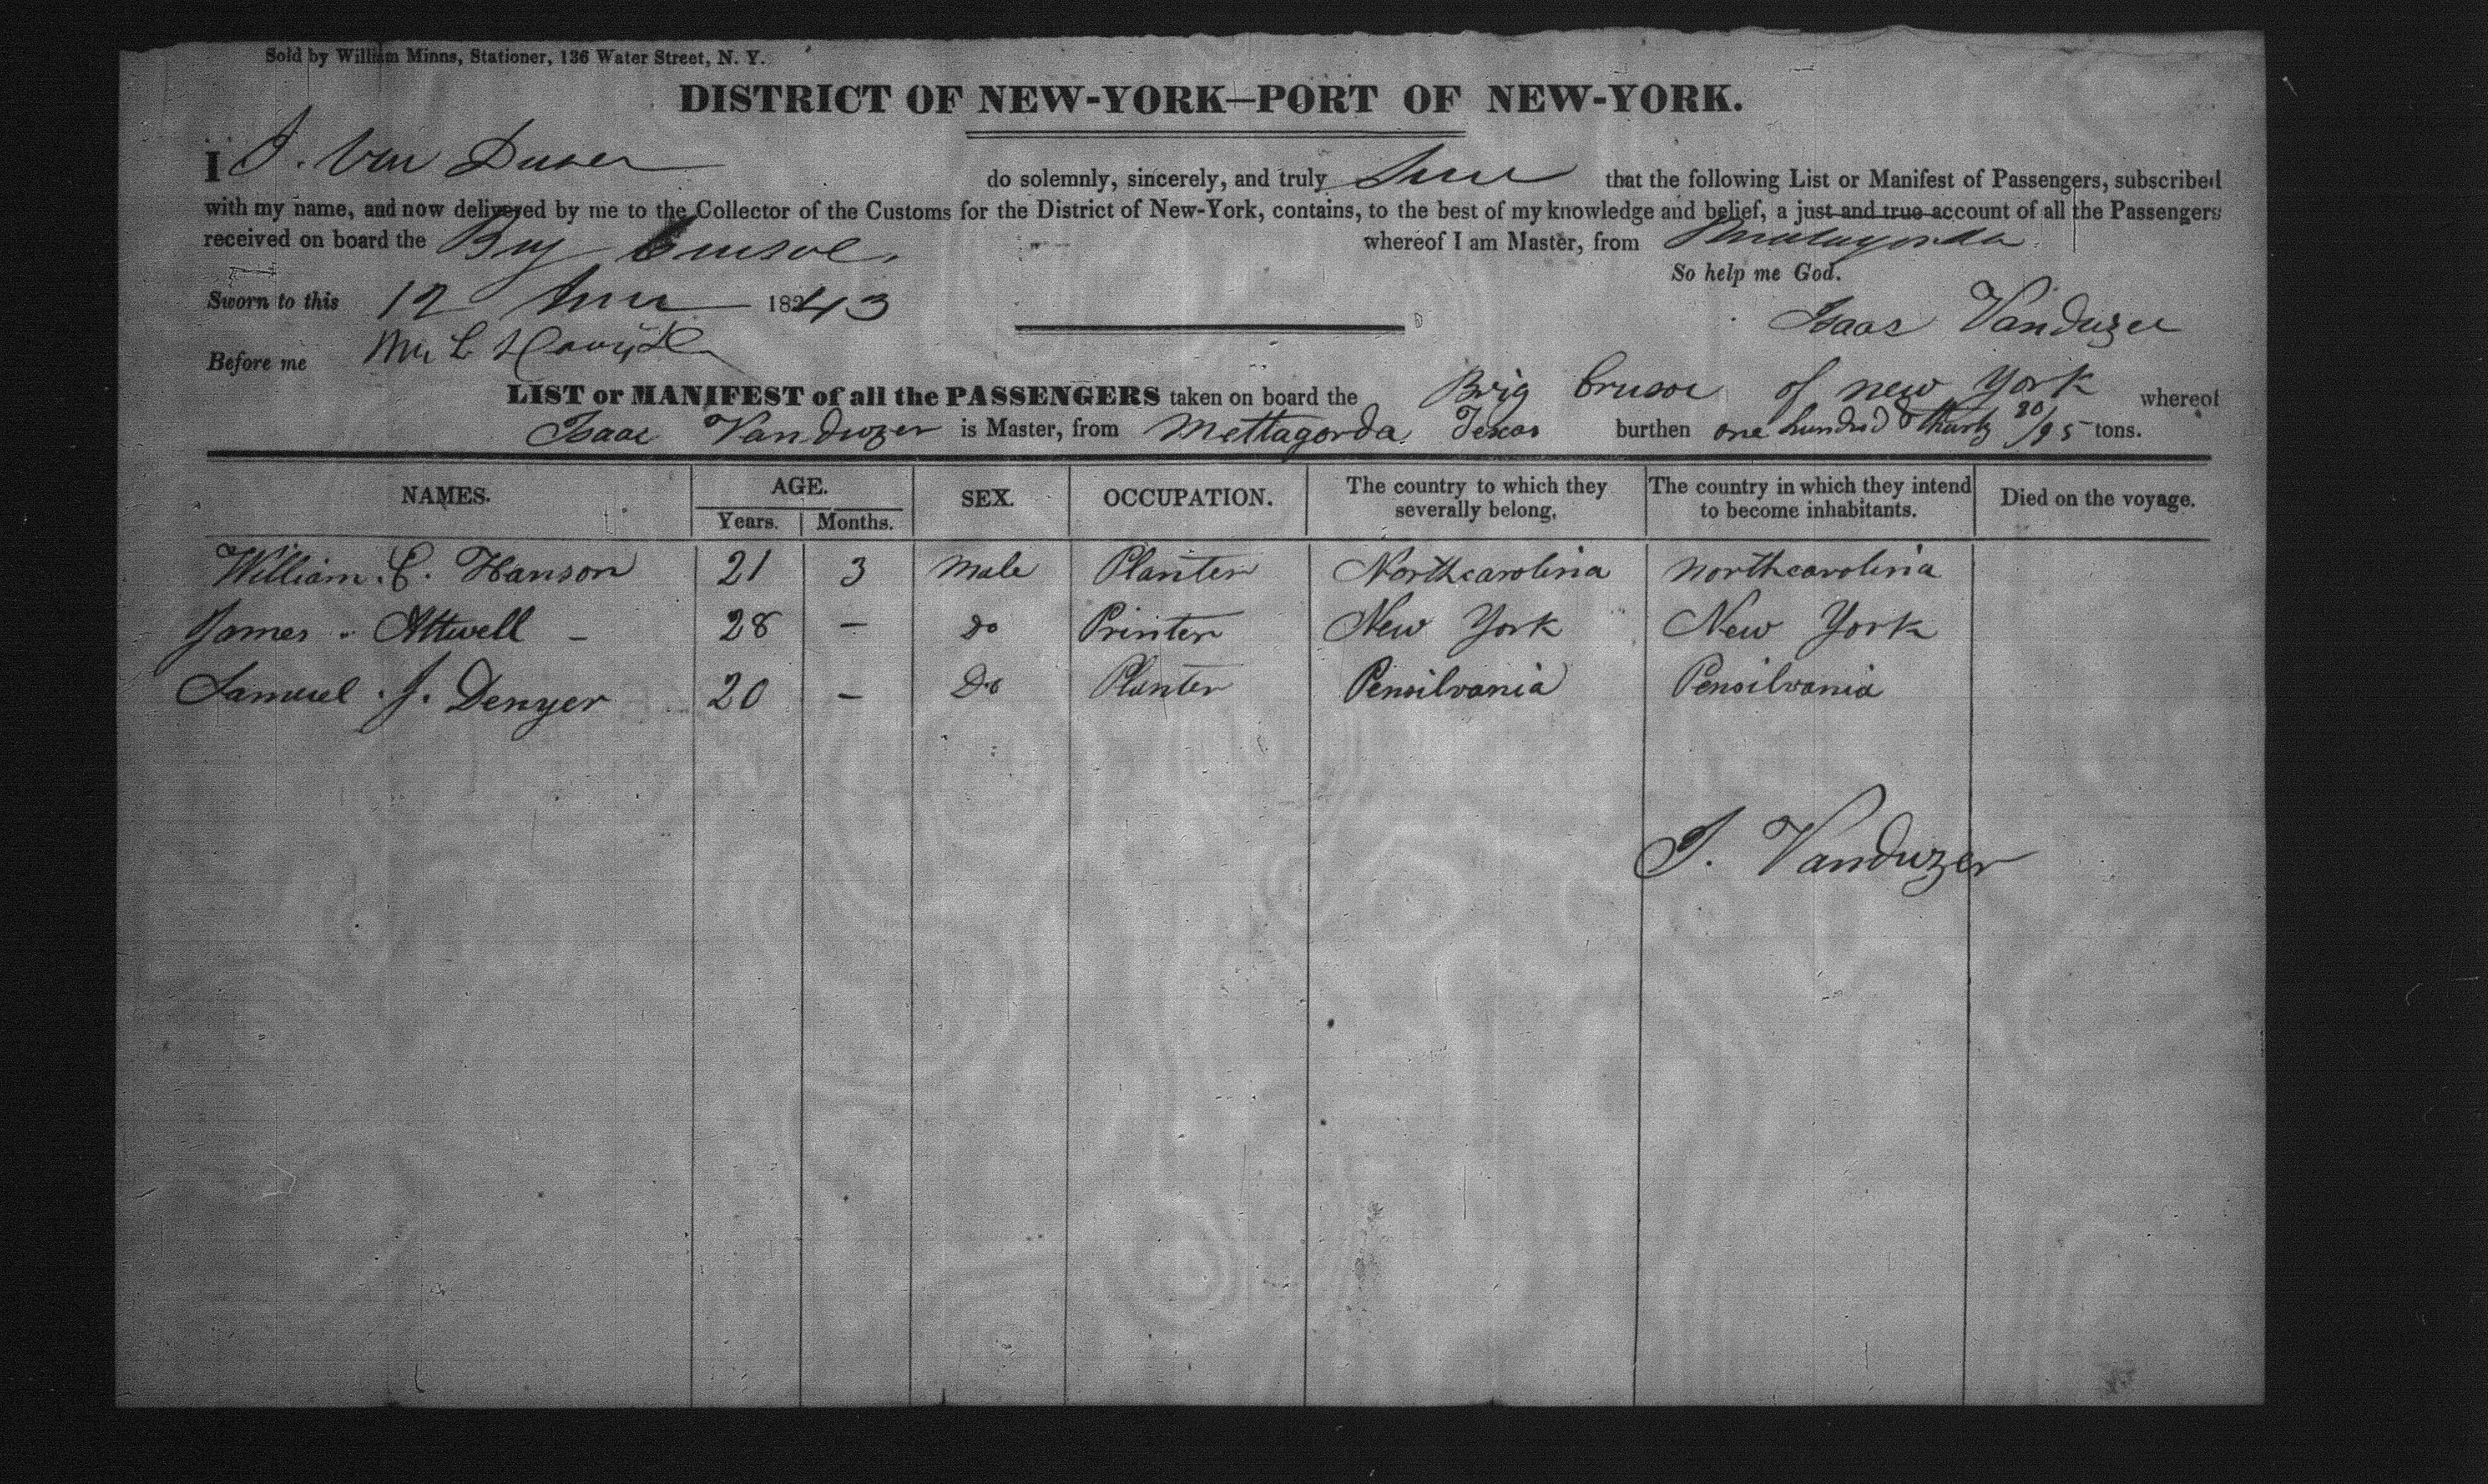 Sold by William Minns, Stationer, 136 Water Street, N. Y.
DISTRICT OF NEW-YORK—PORT OF NEW-YORK.
I I. Van Duser do solemnly, sincerely, and truly that the following List or Manifest of Passengers, subscribed
with my name, and now delivered by me to the Collector of the Customs for the District of New-York, contains, to the best of my knowledge and belief, a just and true account of all the Passengers
received on board the Brig Crusoe, whereof I am Master, from Matagorda.
So help me God.
Sworn to this 12 June 1843
Isaac Vanduzer
Before me
LIST or MANIFEST of all the PASSENGERS taken on board the Brig Crusoe of new York whereof
Isaac Vanduzer is Master, from Mettagorda, Texas burthen one hundred & thirty 20/95 tons.
NAMES. AGE. SEX. OCCUPATION. The country to which they severally belong. The country in which they intend to become inhabitants. Died on the voyage.
Years. Months.
William. C. Hanson 21 3 Male Planter Northcarolina northcarolina
James Attwell - 28 - do Printer New York New York
Samuel. J. Denyer 20 - Do Planter Pensilvania Pensilvania
I. Vanduzer